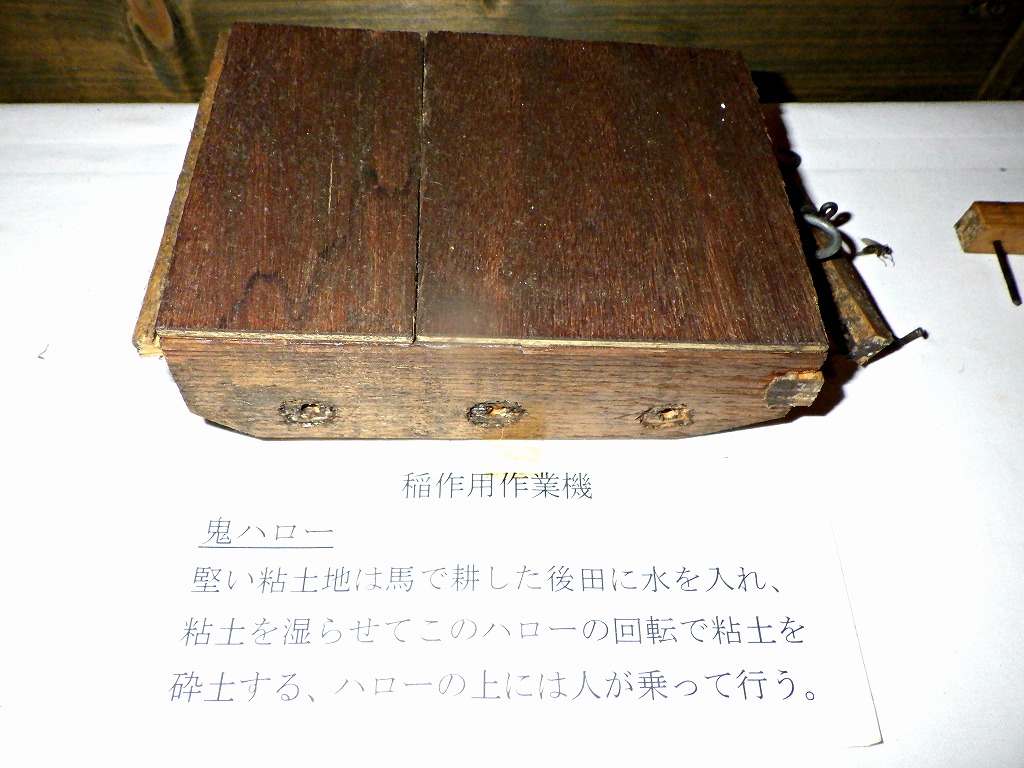 稲作用作業機
鬼ハロー
堅い粘土地は馬で耕した後田に水を入れ、
粘土を湿らせてこのハローの回転で粘土を
砕土する、ハローの上には人が乗って行う。